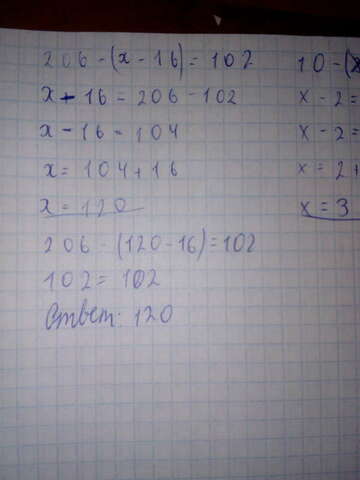 206 - (x - 16) = 102
x - 16 = 206 - 102
x - 16 = 104
x = 104 + 16
x = 120
206 - (120 - 16) = 102
102 = 102
Ответ: 120
10 - (x
x - 2 =
x - 2 =
x = 2 +
x = 3